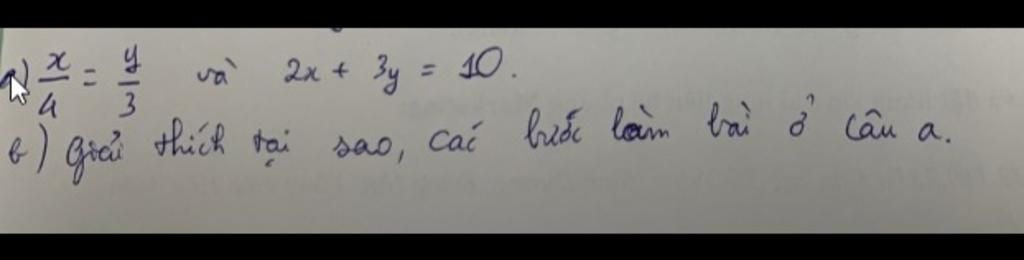 a) x/4 = y/3 và 2x + 3y = 10.
b) Giải thích tại sao, các bước làm bài ở câu a.